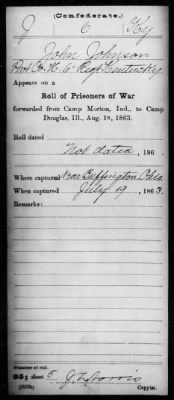 (Confederate.)
J 6 Ky
John Johnson
Pvt Co. H. 6" Regt Kentucky
Appears on a
Roll of Prisoners of War
forwarded from Camp Morton, Ind., to Camp
Douglas, Ill., Aug. 18, 1863.
Roll dated
Not dated, 186
Where captured Near Buffington Ohio
When captured July 19, 1863.
Remarks:
Number of roll:
sheet 5 J. L. Norris
Copyist.